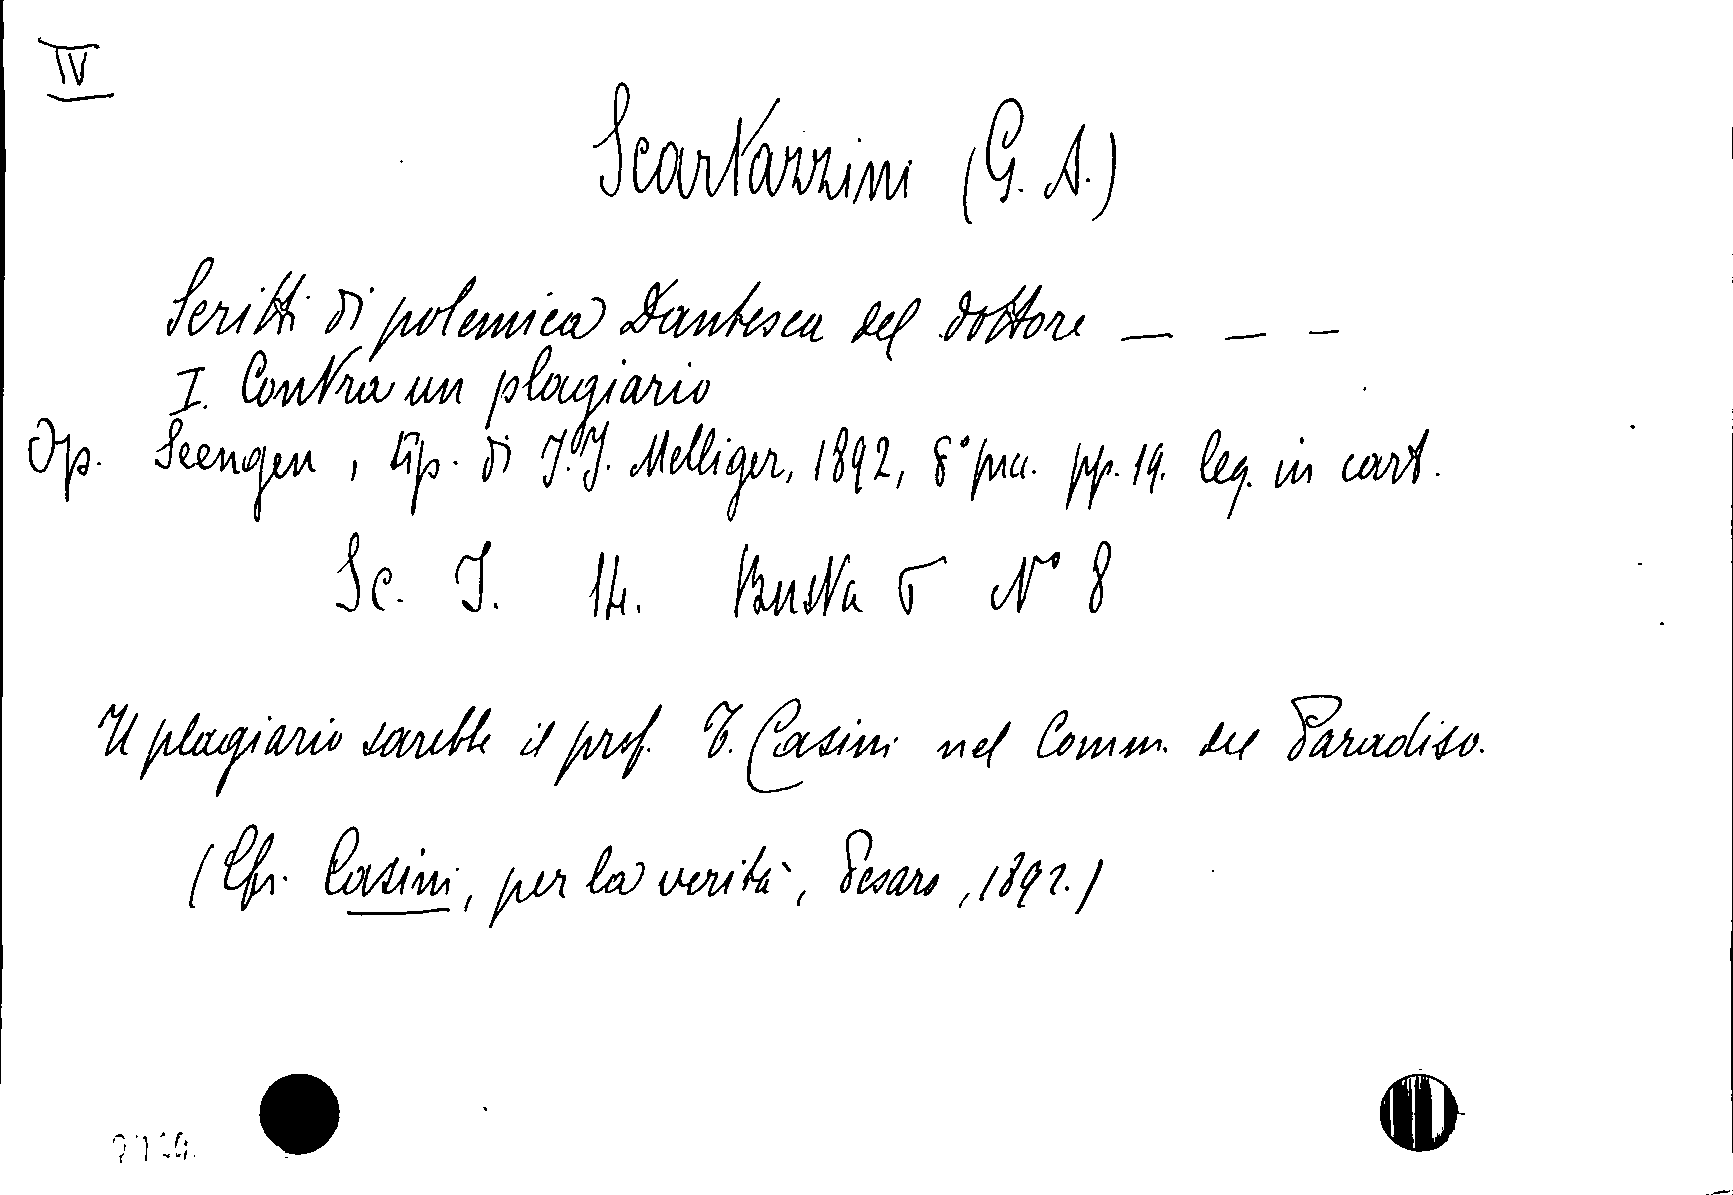 IV
Scartazzini (G. A.)
Scritti di polemica Dantesca del dottore — — —
I. Contra un plagiario
Op. Seengen, tip. di J. J. Melliger, 1892, 8° picc. pp. 19. leg. in cart.
Sc. I. 14. Busta 5 N° 8
Il plagiario sarebbe il prof. T. Casini nel Comm. del Paradiso.
(Cfr. Casini, per la verità, Pesaro, 1892.)